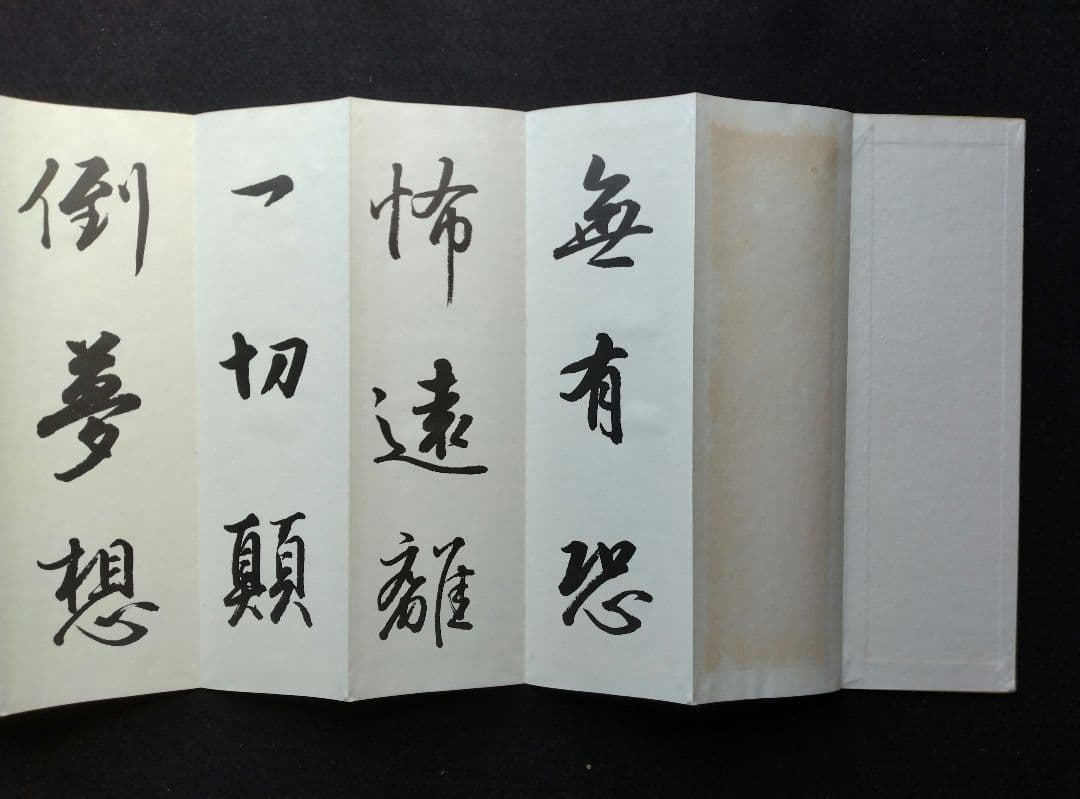 無有恐
怖遠離
一切顛
倒夢想